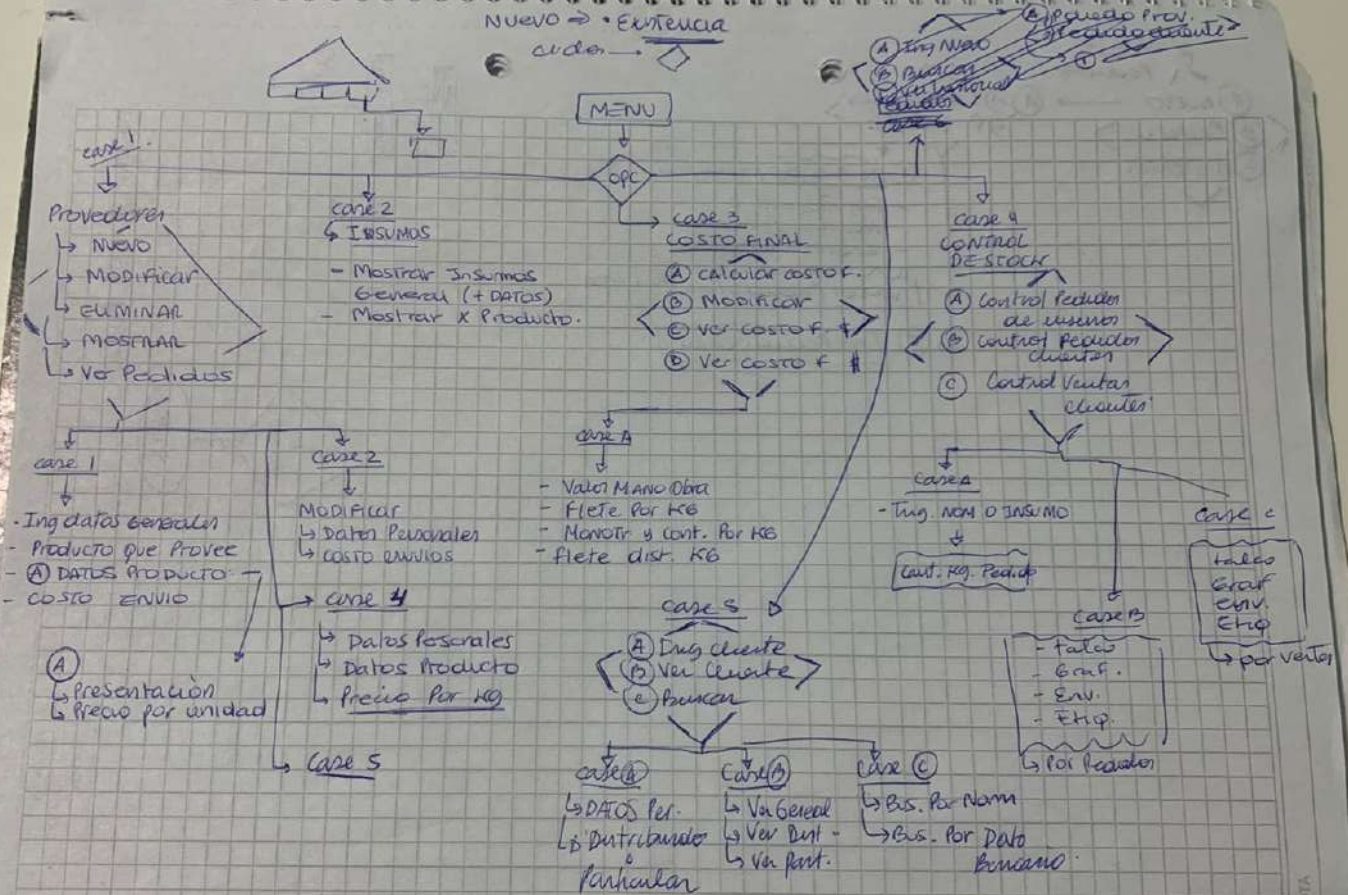 NUEVO ⇒ • EXISTENCIA
MENU
OPC
case 1.
Provedores
↳ NUEVO
↳ MODIFICAR
↳ ELIMINAR
↳ MOSTRAR
↳ Ver Pedidos
case 2
↳ INSUMOS
- Mostrar Insumos
General (+ DATOS)
- Mostrar x Producto.
case 3
COSTO FINAL
(A) Calcular costo F.
(B) Modificar
(C) Ver costo F. $
(D) Ver costo F
case 4
CONTROL
DE STOCK
(A) Control Pedidos
de insumos
(B) Control Pedidos
clientes
(C) Control Ventas
clientes
(A) Ing Nuevo
(B) Buscar
case 6
case 1
- Ing datos Generales
- Producto que Provee
- (A) DATOS PRODUCTO
- COSTO ENVIO
(A)
↳ Presentación
↳ Precio por unidad
case 2
MODIFICAR
↳ Datos Personales
↳ costo envios
case 4
↳ Datos Personales
↳ Datos Producto
↳ Precio Por KG
Case 5
case A
- Valor MANO Obra
- Flete Por KG
- Monotr y cont. Por KG
- flete dist. KG
case 5
(A) Ing cliente
(B) Ver cliente
(C) Buscar
case (A)
↳ DATOS Per.
↳ Distribuidor
o
Particular
Case (B)
↳ Ver General
↳ Ver Dist -
↳ Ver Part.
Case (C)
↳ Bus. Por Nom
↳ Bus. Por Dato
Bancario.
Case A
- Ing. NOM O INSUMO
Cant. Kg. Pedido
Case B
- talco
- Graf.
- Env.
- Etiq.
↳ Por Pedidos
Case C
talco
Graf
Env.
Etiq
↳ por ventas